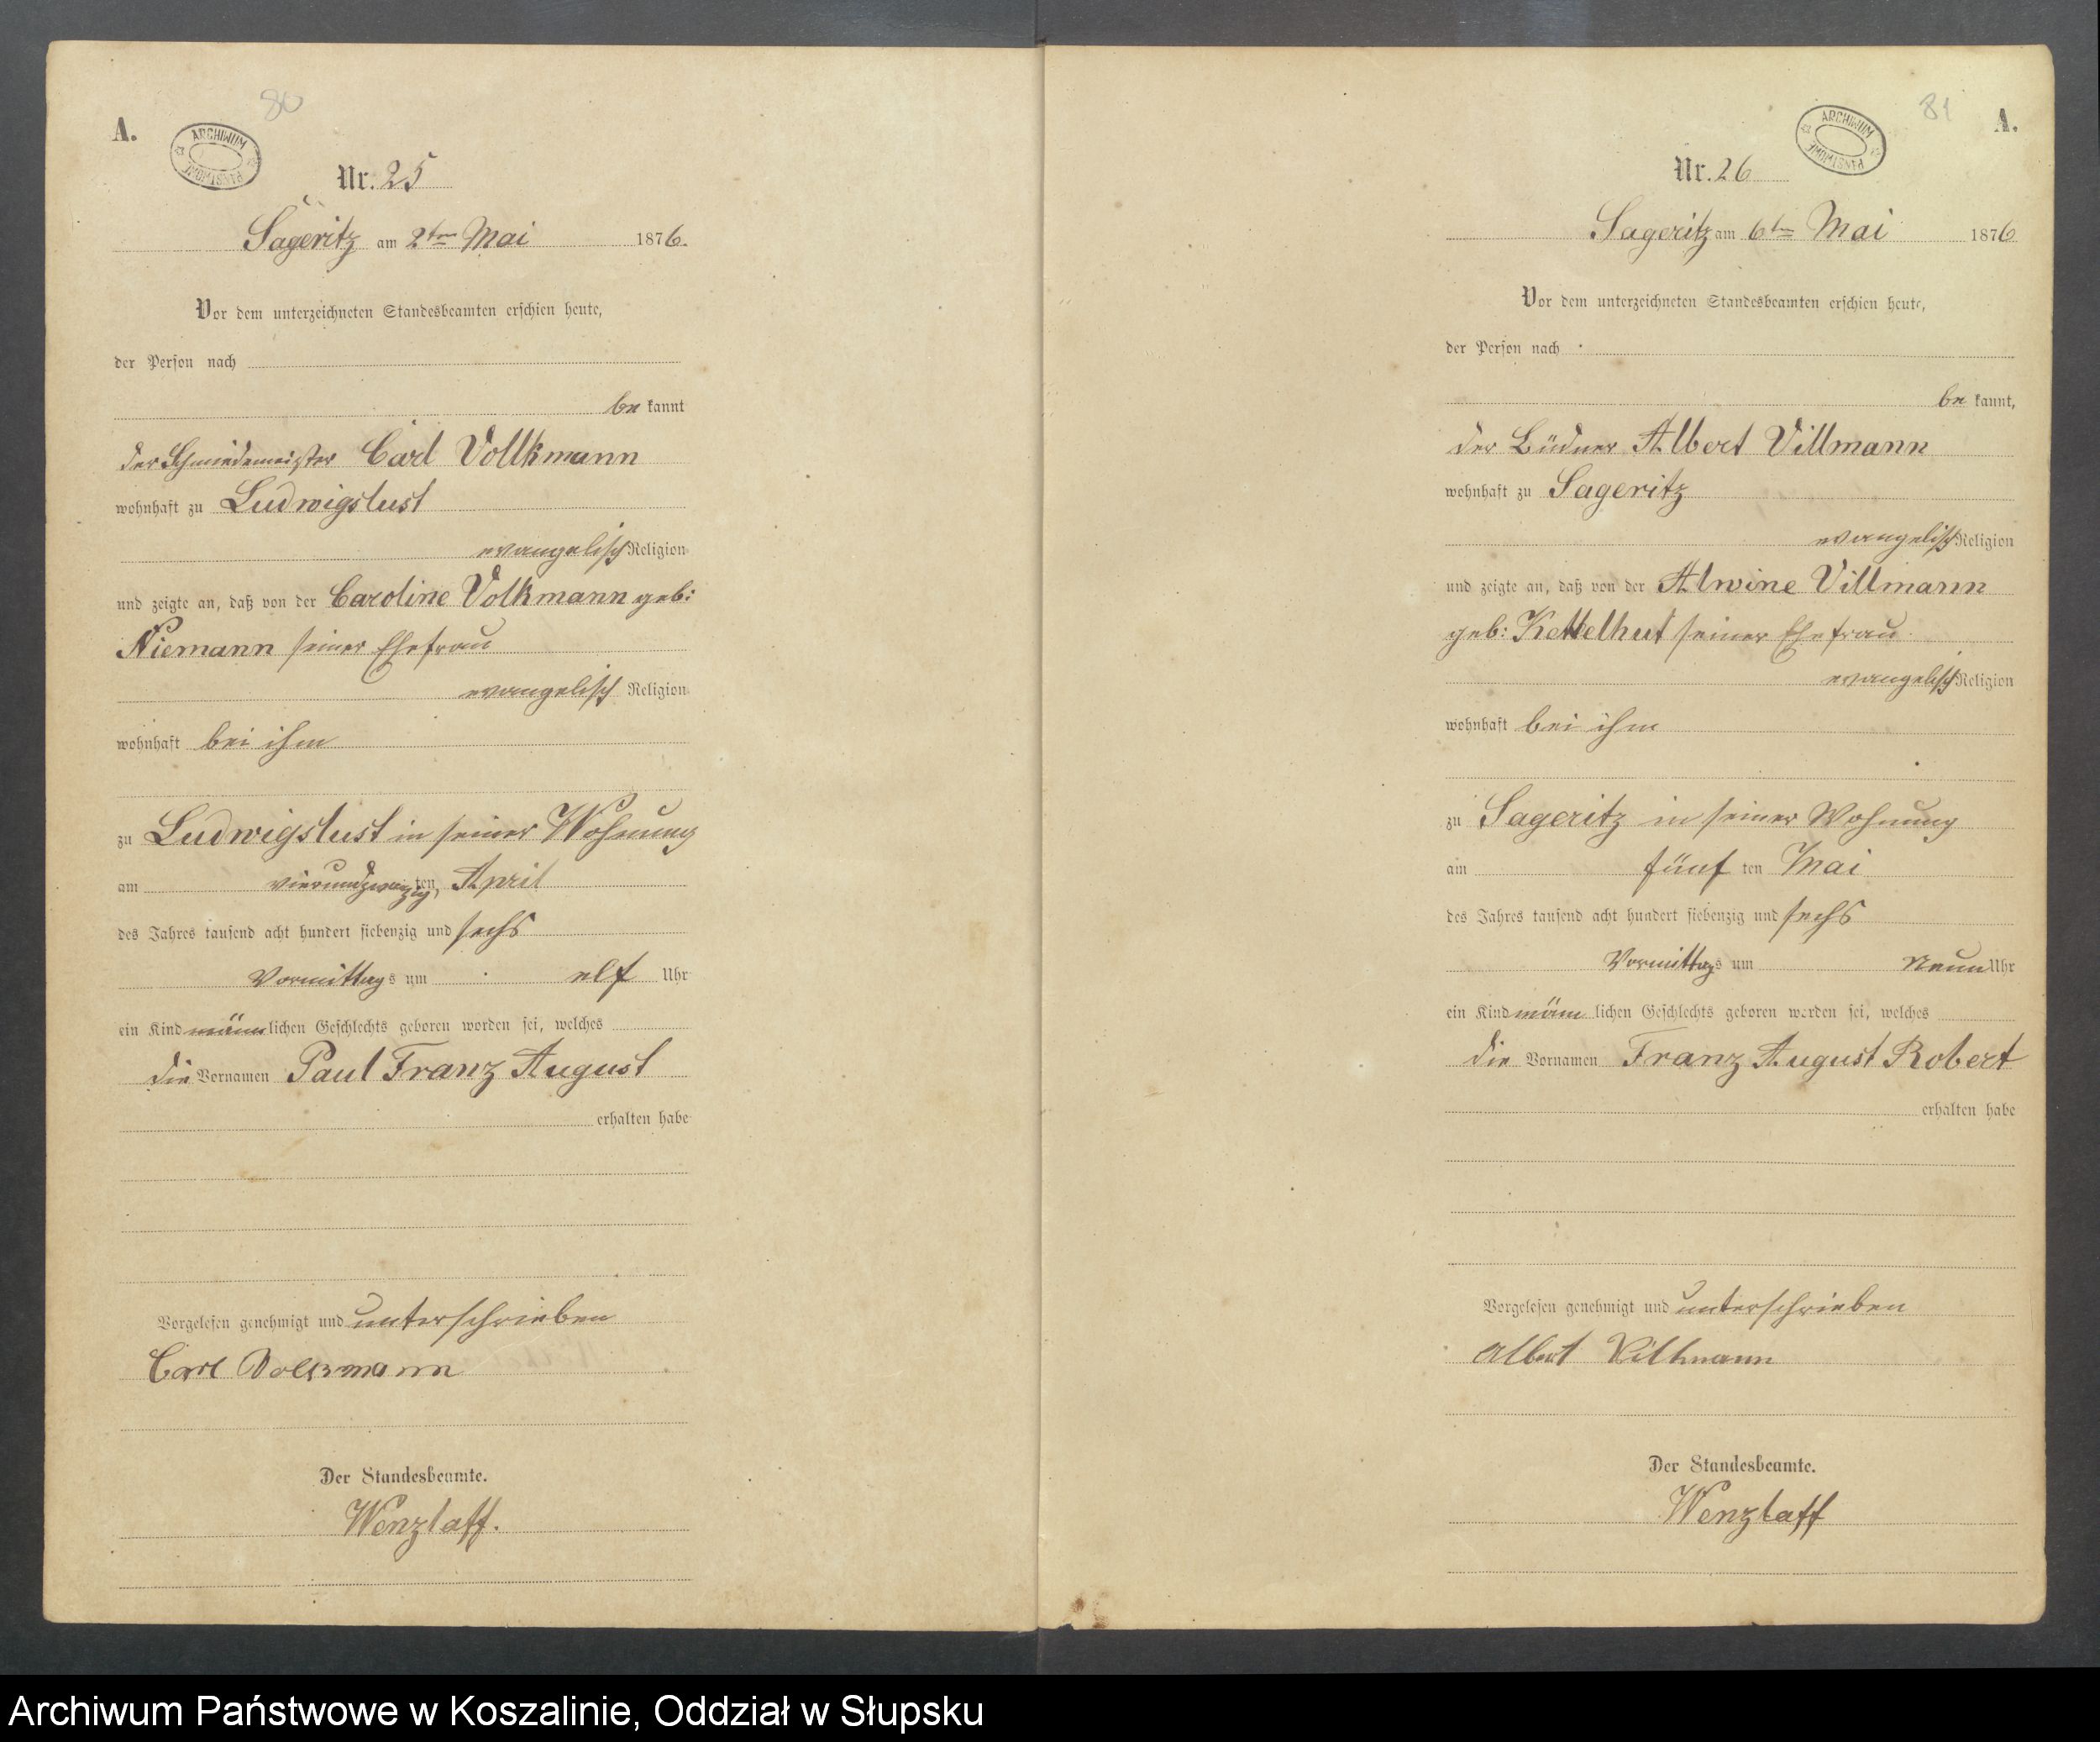 80
A.
ARCHIWUM PAŃSTWOWE
Nr. 25
Sageritz am 2ten Mai 1876.
Vor dem unterzeichneten Standesbeamten erschien heute,
der Person nach
be kannt
der Schmiedemeister Carl Vollkmann
wohnhaft zu Ludwigslust
evangelisch Religion
und zeigte an, daß von der Caroline Volkmann geb:
Niemann seiner Ehefrau
evangelisch Religion
wohnhaft bei ihm
zu Ludwigslust in seiner Wohnung
am vierundzwanzig ten April
des Jahres tausend acht hundert siebenzig und sechs
Vormittags um elf Uhr
ein Kind männlichen Geschlechts geboren worden sei, welches
die Vornamen Paul Franz August
erhalten habe
Vorgelesen genehmigt und unterschrieben
Carl Volkmann
Der Standesbeamte.
Wenzlaff.
81
A.
ARCHIWUM PAŃSTWOWE
Nr. 26
Sageritz am 6ten Mai 1876
Vor dem unterzeichneten Standesbeamten erschien heute,
der Person nach
be kannt,
der Büdner Albert Villmann
wohnhaft zu Sageritz
evangelisch Religion
und zeigte an, daß von der Alwine Villmann
geb: Kettelhut seiner Ehefrau
evangelisch Religion
wohnhaft bei ihm
zu Sageritz in seiner Wohnung
am fünf ten Mai
des Jahres tausend acht hundert siebenzig und sechs
Vormittags um neun Uhr
ein Kind männlichen Geschlechts geboren worden sei, welches
die Vornamen Franz August Robert
erhalten habe
Vorgelesen genehmigt und unterschrieben
Albert Villmann
Der Standesbeamte.
Wenzlaff
Archiwum Państwowe w Koszalinie, Oddział w Słupsku